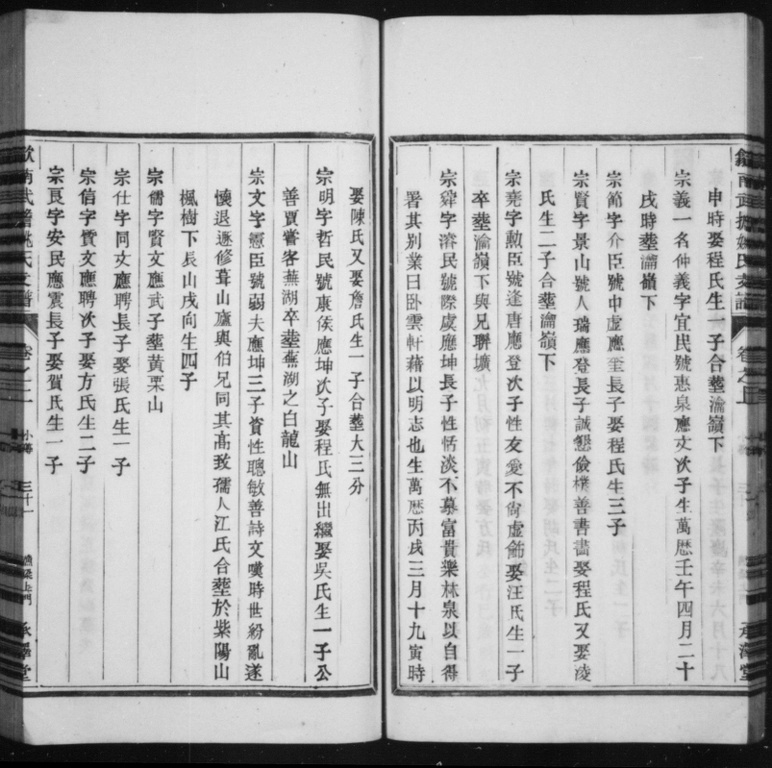 申時娶程氏生一子合塟瀹嶺下
宗義一名仲義字宜民號惠泉應文次子生萬厯壬午四月二十
戌時塟瀹嶺下
宗節字介臣號中虛應至長子娶程氏生三子
宗賢字景山號人瑞應登長子誠懇儉樸善書畵娶程氏又娶凌
氏生二子合塟瀹嶺下
宗堯字勲臣號逢唐應登次子性友愛不尙虛飾娶汪氏生一子
卒塟瀹嶺下與兄聯壙
宗舜字濬民號際虞應坤長子性恬淡不慕富貴樂林泉以自得
署其别業曰卧雲軒藉以明志也生萬厯丙戌三月十九寅時
娶陳氏又娶詹氏生一子合塟大三分
宗明字哲民號康侯應坤次子娶程氏無出繼娶吳氏生一子公
善賈嘗客蕪湖卒塟蕪湖之白龍山
宗文字憲臣號弱夫應坤三子賞性聰敏善詩文嘆時世紛亂遂
懷退遯修葺山廬與伯兄同其髙致孺人江氏合塟於紫陽山
楓樹下艮山戌向生四子
宗儒字賢文應武子塟黃栗山
宗仕字同文應聘長子娶張氏生一子
宗信字賓文應聘次子娶方氏生二子
宗良字安民應震長子娶賀氏生一子
卷之二
三十一
承澤堂